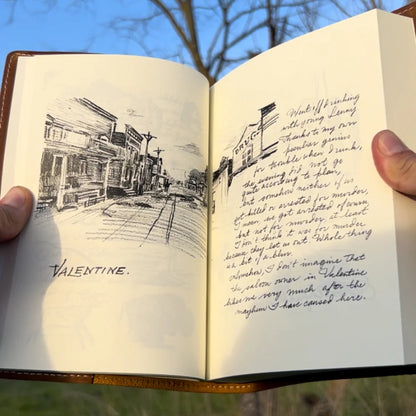 VALENTINE.
DRUG
Went off drinking
with young Lenny
Thanks to my own
peculiar genius
for trouble when I drink,
the evening did not go
quite according to plan,
but somehow neither of us
got killed or arrested for murder.
I mean we got arrested of course,
but not for murder at least
I don't think it was for murder
because they let us out. Whole thing
is a bit of a blur.
Anyhow, I don't imagine that
the saloon owner in Valentine
likes me very much after the
mayhem I have caused here.